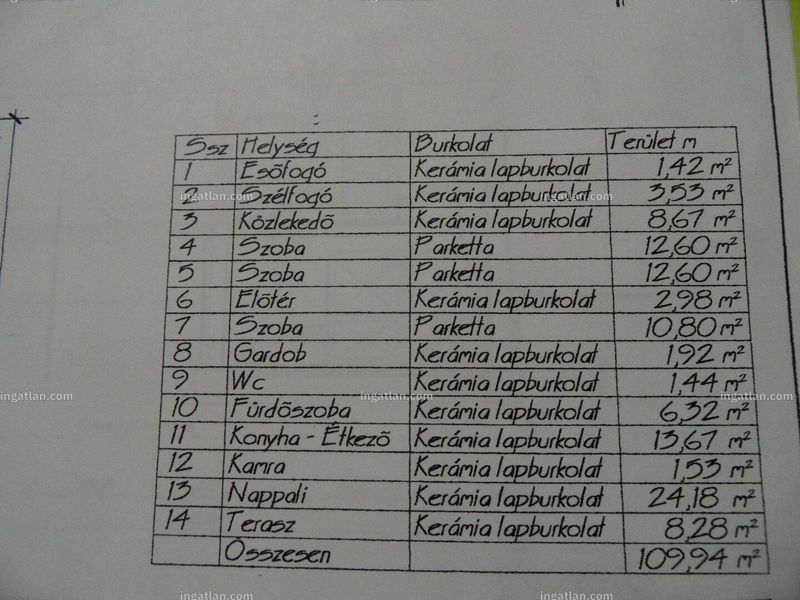 Ssz Helység Burkolat Terület m
1 Esőfogó Kerámia lapburkolat 1,42 m²
2 Szélfogó Kerámia lapburkolat 3,53 m²
3 Közlekedő Kerámia lapburkolat 8,67 m²
4 Szoba Parketta 12,60 m²
5 Szoba Parketta 12,60 m²
6 Előtér Kerámia lapburkolat 2,98 m²
7 Szoba Parketta 10,80 m²
8 Gardob Kerámia lapburkolat 1,92 m²
9 Wc Kerámia lapburkolat 1,44 m²
10 Fürdőszoba Kerámia lapburkolat 6,32 m²
11 Konyha - Étkező Kerámia lapburkolat 13,67 m²
12 Kamra Kerámia lapburkolat 1,53 m²
13 Nappali Kerámia lapburkolat 24,18 m²
14 Terasz Kerámia lapburkolat 8,28 m²
Összesen 109,94 m²
ingatlan.com ingatlan.com
ingatlan.com ingatlan.com ingatlan.com
ingatlan.com ingatlan.com